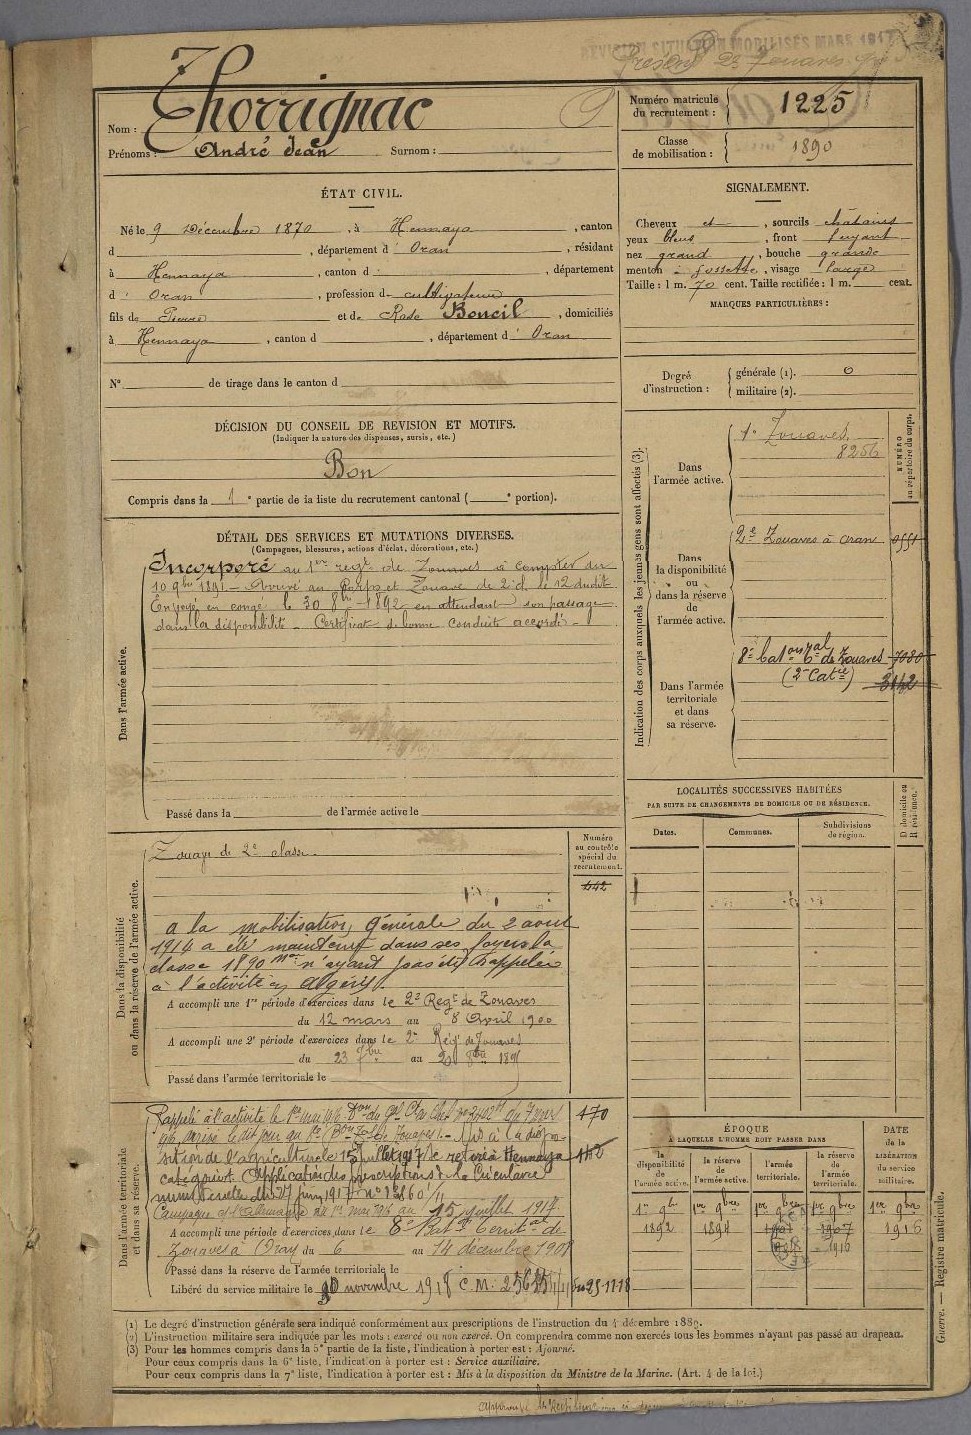 REVISION SITUATION MOBILISÉS MARS 1917
Nom : Thorrignac
Prénoms : André Jean Surnom :
Numéro matricule du recrutement : 1225
Classe de mobilisation : 1890
ÉTAT CIVIL.
Né le 9 Décembre 1870, à Hennaya, canton
d , département d' Oran, résidant
à Hennaya, canton d , département
d' Oran, profession de cultivateur
fils de Pierre et de Rose Boncil, domiciliés
à Hennaya, canton d , département d' Oran
N° de tirage dans le canton d
SIGNALEMENT.
Cheveux et , sourcils châtains
yeux bleus, front fuyant
nez grand, bouche grande
menton à fossette, visage large
Taille : 1 m. 70 cent. Taille rectifiée : 1 m. cent.
MARQUES PARTICULIÈRES :
Degré d'instruction : générale (1). 0
militaire (2).
DÉCISION DU CONSEIL DE REVISION ET MOTIFS.
(Indiquer la nature des dispenses, sursis, etc.)
Bon
Compris dans la 1e partie de la liste du recrutement cantonal ( e portion).
DÉTAIL DES SERVICES ET MUTATIONS DIVERSES.
(Campagnes, blessures, actions d'éclat, décorations, etc.)
Dans l'armée active.
Incorporé au 1er régt de Zouaves à compter du
10 9bre 1891 – Arrivé au Corps et Zouave de 2e cl. le 12 dudit
Envoyé en congé le 30 8bre 1892 en attendant son passage
dans la disponibilité – Certificat de bonne conduite accordé –
Passé dans la de l'armée active le
Indication des corps auxquels les jeunes gens sont affectés (3).
NUMÉRO au répertoire du corps.
Dans l'armée active.
1e Zouaves
8256
Dans la disponibilité ou dans la réserve de l'armée active.
2e Zouaves à Oran
Dans l'armée territoriale et dans sa réserve.
8e Batон tal de Zouaves 7080
(2e Catie) 3142
LOCALITÉS SUCCESSIVES HABITÉES
PAR SUITE DE CHANGEMENTS DE DOMICILE OU DE RÉSIDENCE.
Dates. Communes. Subdivisions de région. D domicile ou R résidence.
Dans la disponibilité ou dans la réserve de l'armée active.
Numéro au contrôle spécial du recrutement.
Zouave de 2e classe.
442
A la mobilisation générale du 2 août
1914 a été maintenu dans ses foyers la
classe 1890 n'ayant pas été rappelée
à l'activité en Algérie.
A accompli une 1re période d'exercices dans le 2e Régt de Zouaves
du 12 mars au 8 Avril 1900
A accompli une 2e période d'exercices dans le 2e Régt de Zouaves
du 23 7bre au 20 8bre 189
Passé dans l'armée territoriale le
Dans l'armée territoriale et dans sa réserve.
Rappelé à l'activité le 1er mai 1916
170
arrivé le dit jour au Mis à la dispo-
sition de l'agriculture le 15 juillet 1917 se retire à Hennaya
142
Application des prescriptions de la Circulaire
ministérielle du 27 juin 1917
Campagne c/ l'Allemagne du 1er mai 1916 au 15 juillet 1917.
A accompli une période d'exercices dans le 8e Bat. territal de
Zouaves à Oran du 6 au 14 décembre 1908
Passé dans la réserve de l'armée territoriale le
Libéré du service militaire le 10 novembre 1918 C.M.
ÉPOQUE
A LAQUELLE L'HOMME DOIT PASSER DANS
DATE de la LIBÉRATION du service militaire.
la disponibilité de l'armée active. la réserve de l'armée active. l'armée territoriale. la réserve de l'armée territoriale.
1er 9bre 1er 9bre 1er 9bre 1er 9bre 1er 9bre
1892 1894 1901 1907 1916
1916
Guerre. — Registre matricule.
(1) Le degré d'instruction générale sera indiqué conformément aux prescriptions de l'instruction du 4 décembre 1889.
(2) L'instruction militaire sera indiquée par les mots : exercé ou non exercé. On comprendra comme non exercés tous les hommes n'ayant pas passé au drapeau.
(3) Pour les hommes compris dans la 5e partie de la liste, l'indication à porter est : Ajourné.
Pour ceux compris dans la 6e liste, l'indication à porter est : Service auxiliaire.
Pour ceux compris dans la 7e liste, l'indication à porter est : Mis à la disposition du Ministre de la Marine. (Art. 4 de la loi.)